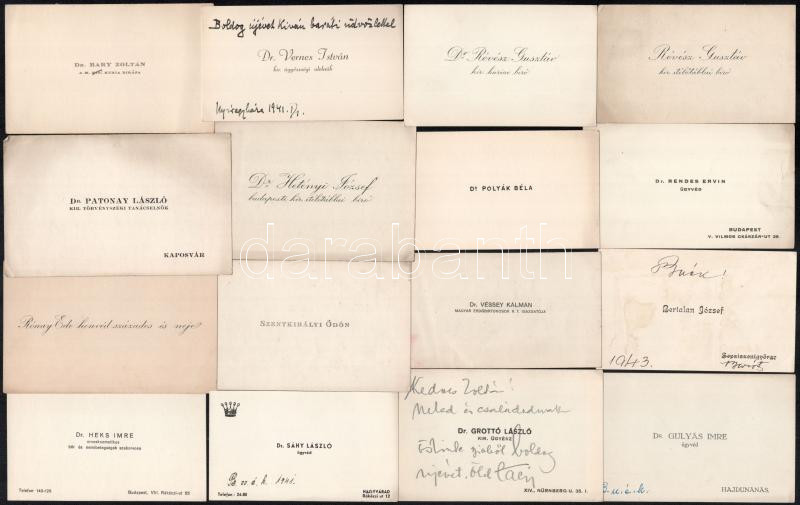 Dr. BARY ZOLTÁN
A M. KIR. KURIA BIRÁJA
Boldog újévet kiván baráti üdvözlettel
Dr. Vernes István
kir. ügyészségi alelnök
Nyíregyháza 1941. I/1.
Dr. Révész Gusztáv
kir. kuriai biró
Révész Gusztáv
kir. itélőtáblai biró
Dr. PATONAY LÁSZLÓ
KIR. TÖRVÉNYSZÉKI TANÁCSELNÖK
KAPOSVÁR
Dr. Hetényi József
budapesti kir. itélőtáblai biró
Dr. POLYÁK BÉLA
Dr. RENDES ERVIN
ÜGYVÉD
BUDAPEST
V. VILMOS CSÁSZÁR-UT 36.
Rónay Ede honvéd százados és neje
SZENTKIRÁLYI ÖDÖN
Dr. VÉSSEY KÁLMÁN
MAGYAR ERDŐBIRTOKOSOK R. T. IGAZGATÓJA
Buék!
Bertalan József
Sepsiszentgyörgy
1943.
Dr. HEKS IMRE
orvoskozmetikus
bőr és nemibetegségek szakorvosa
Telefon 140-125
Budapest, VIII. Rákóczi-ut
Dr. SÁHY LÁSZLÓ
ügyvéd
B. ú. é. k. 1941.
Telefon: 24-88
NAGYVÁRAD
Rákóczi ut 12
Kedves Zoltán!
Neked és családodnak
Dr. GROTTÓ LÁSZLÓ
KIR. ÜGYÉSZ
őszinte szívből boldog
újévet. Ölel Laci
XIV., NÜRNBERG U. 38. I.
Dr. GULYÁS IMRE
ügyvéd
B. u. é. k.
HAJDUNÁNÁS.
darabanth